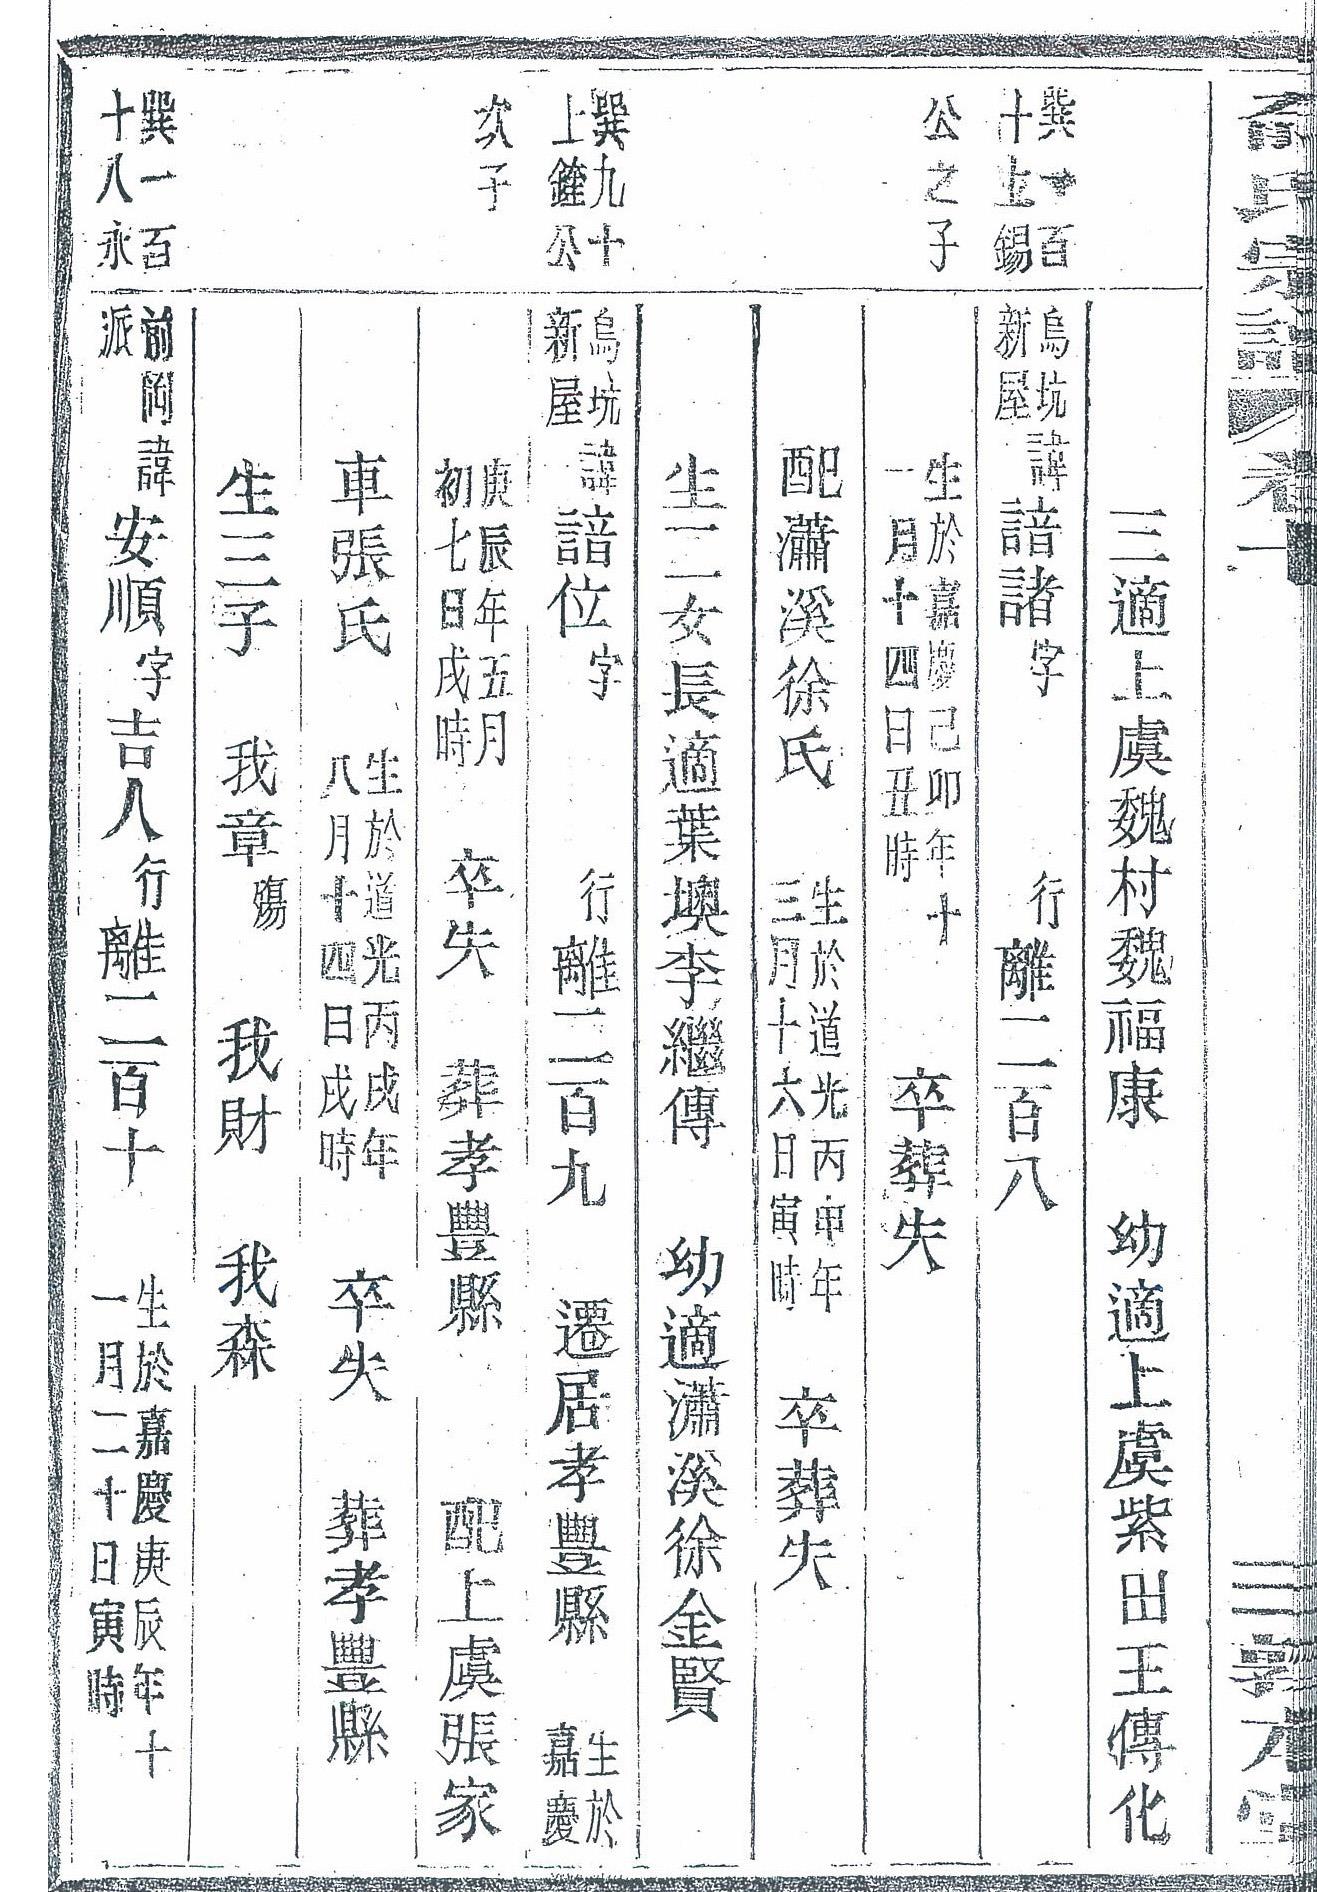 氏宗譜 卷一
三適上虞魏村魏福康 幼適上虞紫出王傳化
巽一百
十世錫
烏坑
新屋
諱諳諸字 行離二百八
公之子
生於嘉慶己卯年十
一月十四日丑時
卒葬失
配瀟溪徐氏
生於道光丙申年
三月十六日寅時
卒葬失
生二女長適葉墺李繼傳 幼適瀟溪徐金賢
巽九十
上鍾公
烏坑
新屋
諱諳位字 行離二百九 遷居孝豐縣
生於
嘉慶
次子
庚辰年五月
初七日戌時
卒失 葬孝豐縣 配上虞張家
車張氏
生於道光丙戌年
八月十四日戌時
卒失 葬孝豐縣
生三子 我章殤 我財 我森
巽一百
十八永
前岡
派
諱安順字吉人行離二百十
生於嘉慶庚辰年十
一月二十日寅時